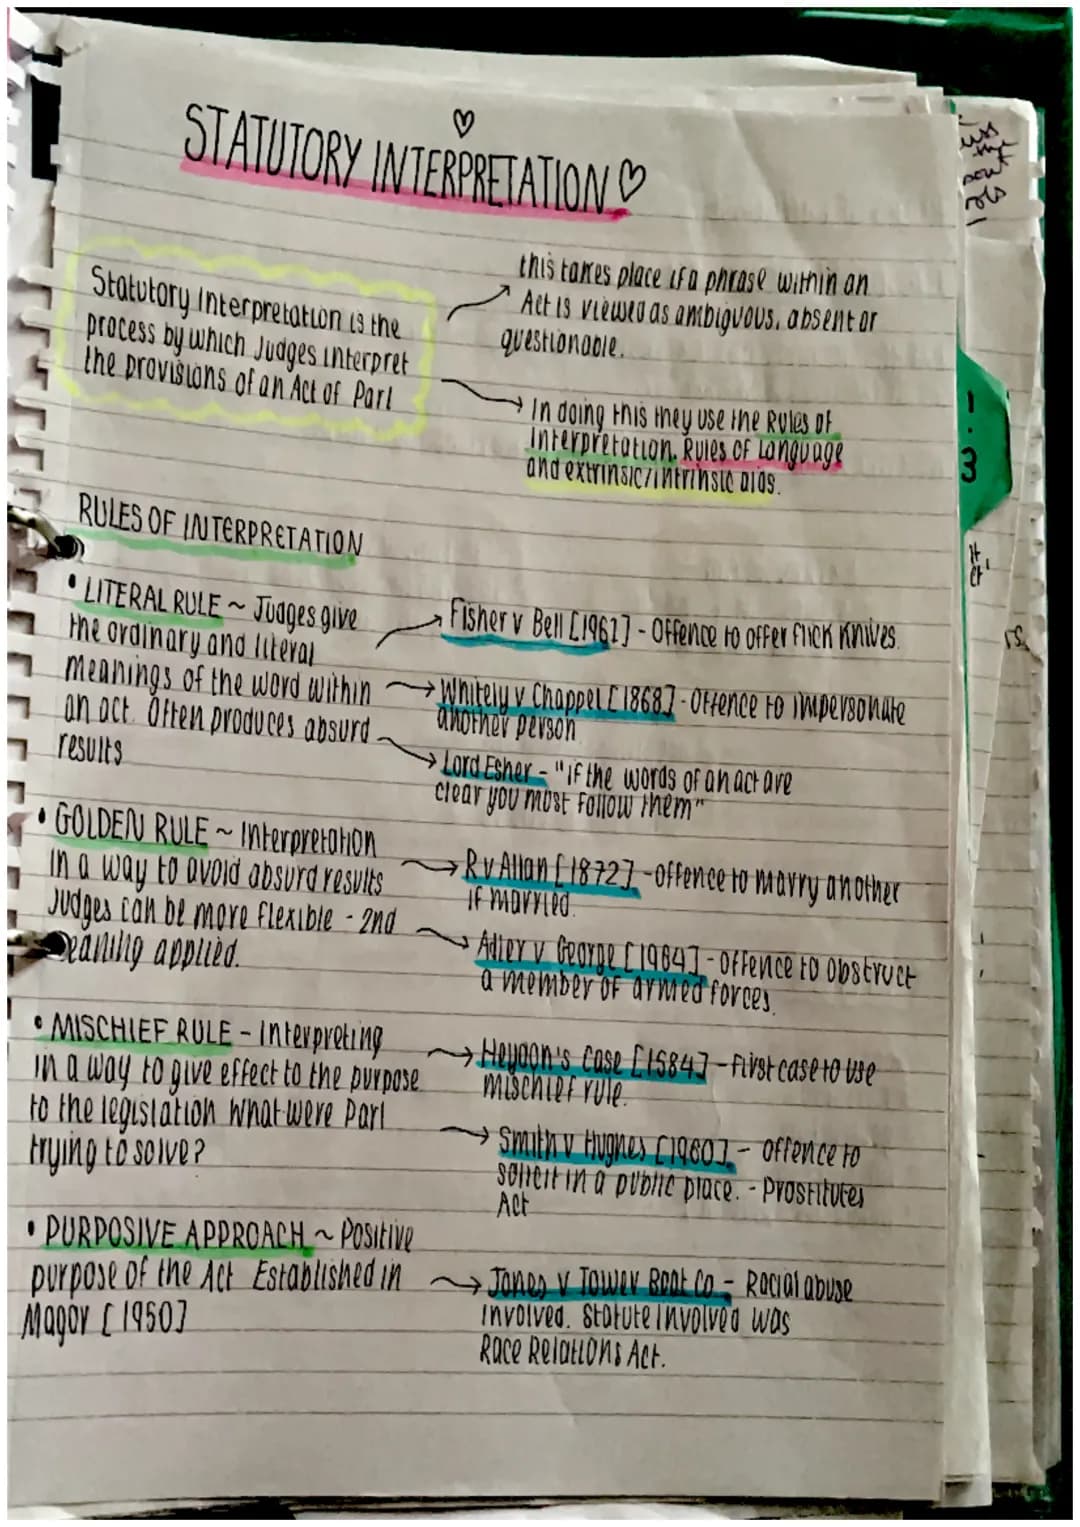 STATUTORY INTERPRETATION
Statutory Interpretation is the
process by which Judges interpret
the provisions of an Act of Parl
this takes place if a phrase within an
Act is viewed as ambiguous, absent or
questionable.
In doing this they use the Rules of
Interpretation, Rules of Language
and extrinsic/intrinsic aids.
RULES OF INTERPRETATION
• LITERAL RULE ~ Judges give
the ordinary and literal
meanings of the word within
an act. Often produces absurd
results
Fisher v Bell [1961] - Offence to offer flick knives.
Whitely v Chappel [1868] - Offence to impersonate
another person
Lord Esher - "if the words of an act are
clear you must follow them"
• GOLDEN RULE ~ Interpretation
in a way to avoid absurd results
Judges can be more flexible - 2nd
meaning applied.
R v Allan [1872] - offence to marry another
if married.
Adler v George [1964] - offence to obstruct
a member of armed forces.
• MISCHIEF RULE - Interpreting
in a way to give effect to the purpose
to the legislation What were Parl
trying to solve?
Heydon's Case [1584] - First case to use
mischief rule.
Smith v Hughes [1960] - offence to
solicit in a public place. - Prostitutes
Act
• PURPOSIVE APPROACH ~ Positive
purpose of the Act Established in
Magor [1950]
Jones v Tower Boat Co - Racial abuse
involved. Statute involved was
Race Relations Act.
1.3